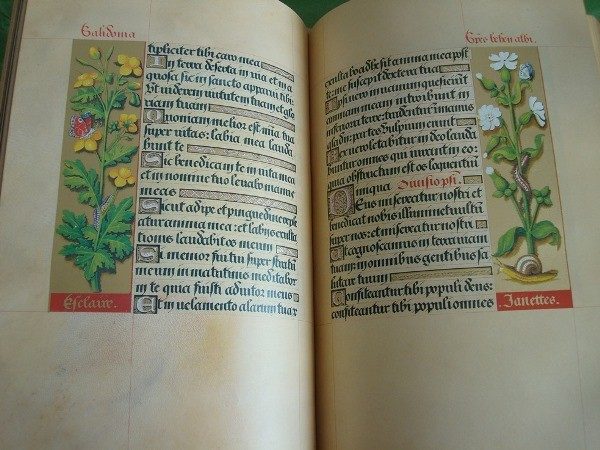 Calidonia
tipliciter tibi caro mea
In terra deserta in via et in a
quosa sic in sancto apparui tibi
Ut viderem virtutem tuam et glo
riam tuam
Quoniam melior est mia tua
super vitas: labia mea lauda
bunt te
Sic benedicam te in vita mea
et in nomine tuo levabo manus
meas
Sicut adipe et pinguedine reple
atur anima mea: et labiis exulta
tionis laudabit os meum
Si memor fui tui super stratū
meum in matutinis meditabor
in te quia fuisti adiutor meus
Et in velamento alarum tuarū
Esclaire.
albi.
exultabo adhesit anima mea post
te: me suscepit dextera tua
Ipsi vero in vanum quesierunt
animam meam introibunt in
inferiora terre: tradentur in manus
gladii: partes vulpium erunt
Rex vero letabitur in deo lauda
buntur omnes qui iurant in eo
quia obstructum est os loquentiū
iniqua
Deus misereatur nostri et
benedicat nobis illuminet vultū
super nos: et misereatur nostri
Ut cognoscamus in terra viam
tuam in omnibus gentibus salu
tare tuum
Confiteantur tibi populi deus:
confiteantur tibi populi omnes
Janettes.